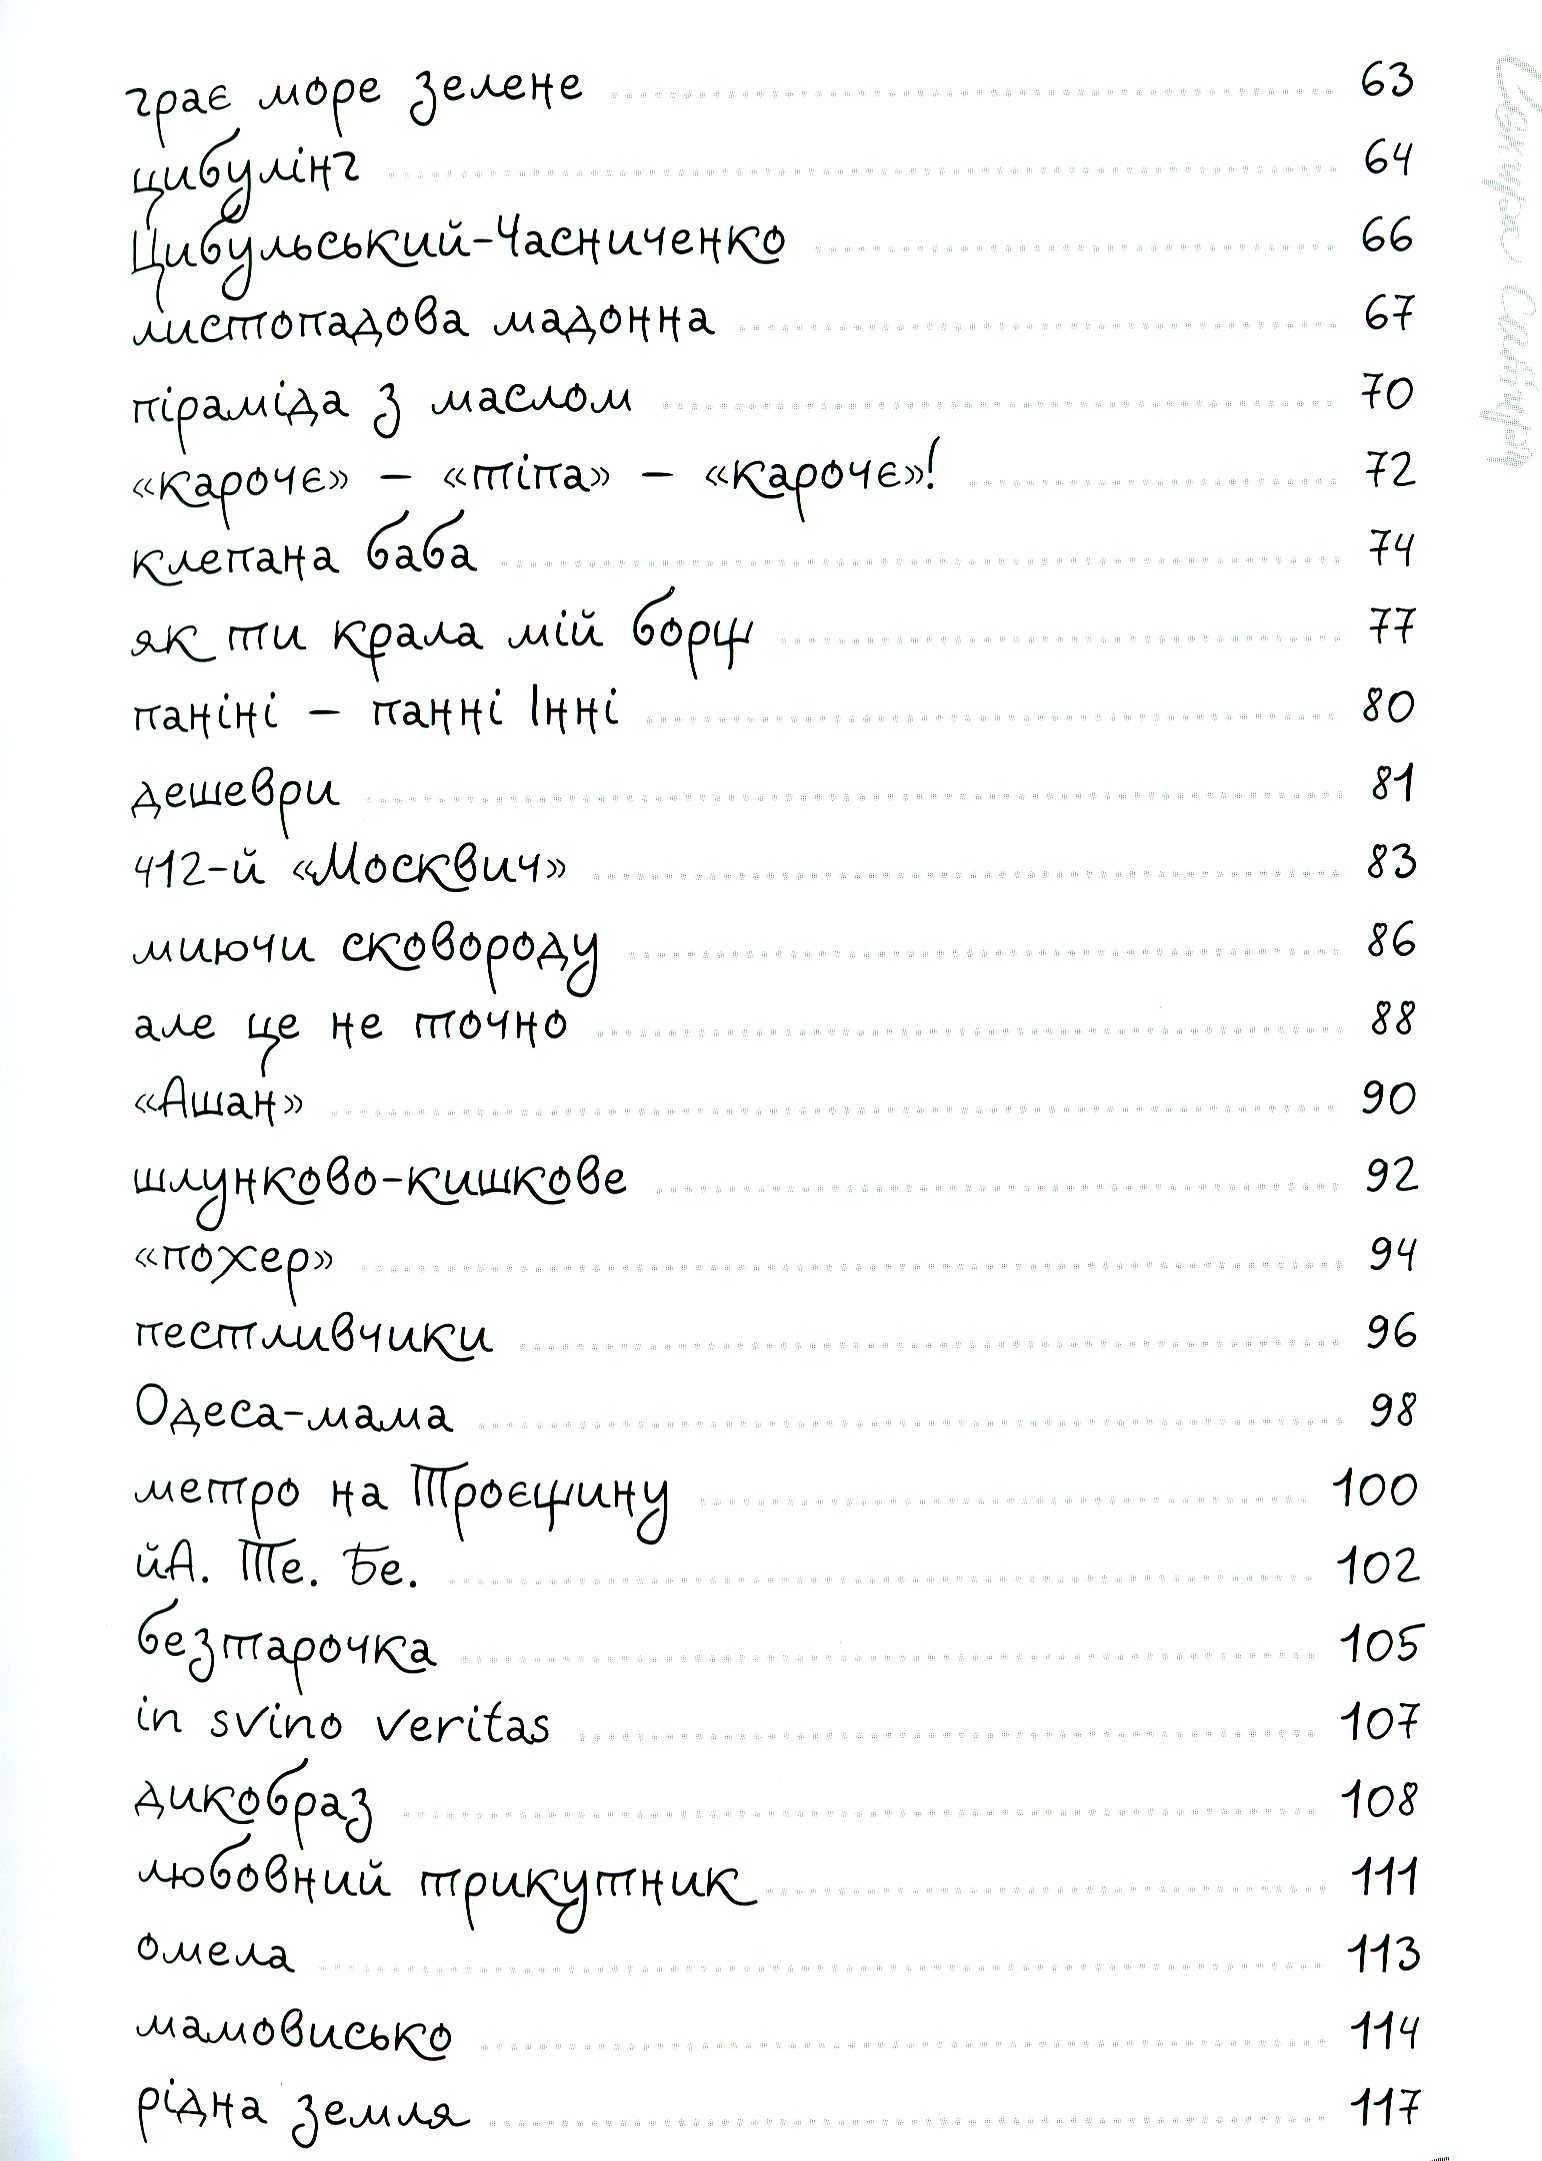 грає море зелене 63
цибулінг 64
Цибульський-Часниченко 66
листопадова мадонна 67
піраміда з маслом 70
«карочє» – «тіпа» – «карочє»! 72
клепана баба 74
як ти крала мій борщ 77
паніні – панні Інні 80
дешеври 81
412-й «Москвич» 83
миючи сковороду 86
але це не точно 88
«Ашан» 90
шлунково-кишкове 92
«похер» 94
пестливчики 96
Одеса-мама 98
метро на Троєщину 100
йА. Те. Бе. 102
безтарочка 105
in svino veritas 107
дикобраз 108
любовний трикутник 111
омела 113
мамовисько 114
рідна земля 117